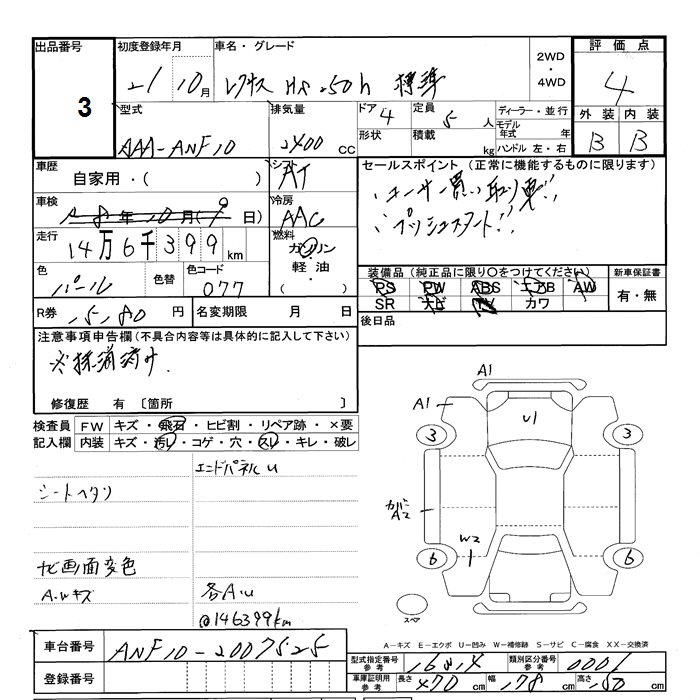 出品番号 初度登録年月 車名・グレード 2WD・4WD 評価点
3 21 10月 レクサス HS 250h 標準 4
型式 排気量 ドア 4 定員 5 人 ディーラー・並行 外装 内装
AAA-ANF10 2400 CC 形状 積載 kg モデル年式 年 B B
ハンドル 左・右
車歴 シフト セールスポイント (正常に機能するものに限ります)
自家用・( ) AT ユーザー買い取り車!!
車検 冷房 プッシュスタート!!
年 10月( 日) AAC
走行 燃料
14万6千399km ガソリン・軽油・( )
色 色替 色コード 装備品 (純品に限り〇をつけてください) 新車保証書
パール 077 PS PW ABS エアB AW 有・無
SR ナビ TV カワ
R券 円 名変期限 月 日 後日品
注意事項申告欄(不具合内容等は具体的に記入して下さい)
※抹消済み
修復歴 有 〔箇所 〕
検査員 FW キズ・飛石・ヒビ割・リペア跡・×要
記入欄 内装 キズ・汚レ・コゲ・穴・スレ・キレ・破レ
エンドパネルU
シートヘタリ
ナビ画面変色
A.Wキズ 各A.U
@146399km
A1
A1 U1
3 3
カバーA2
W2
1
6 6
スペア
A-キズ E-エクボ U-凹み W-補修跡 S-サビ C-腐食 XX-交換済
車台番号 ANF10-2007525
登録番号
型式指定番号 参考 類別区分番号 参考 0001
車庫証明用 参考 長さ 470 cm 幅 178 cm 高さ 150 cm